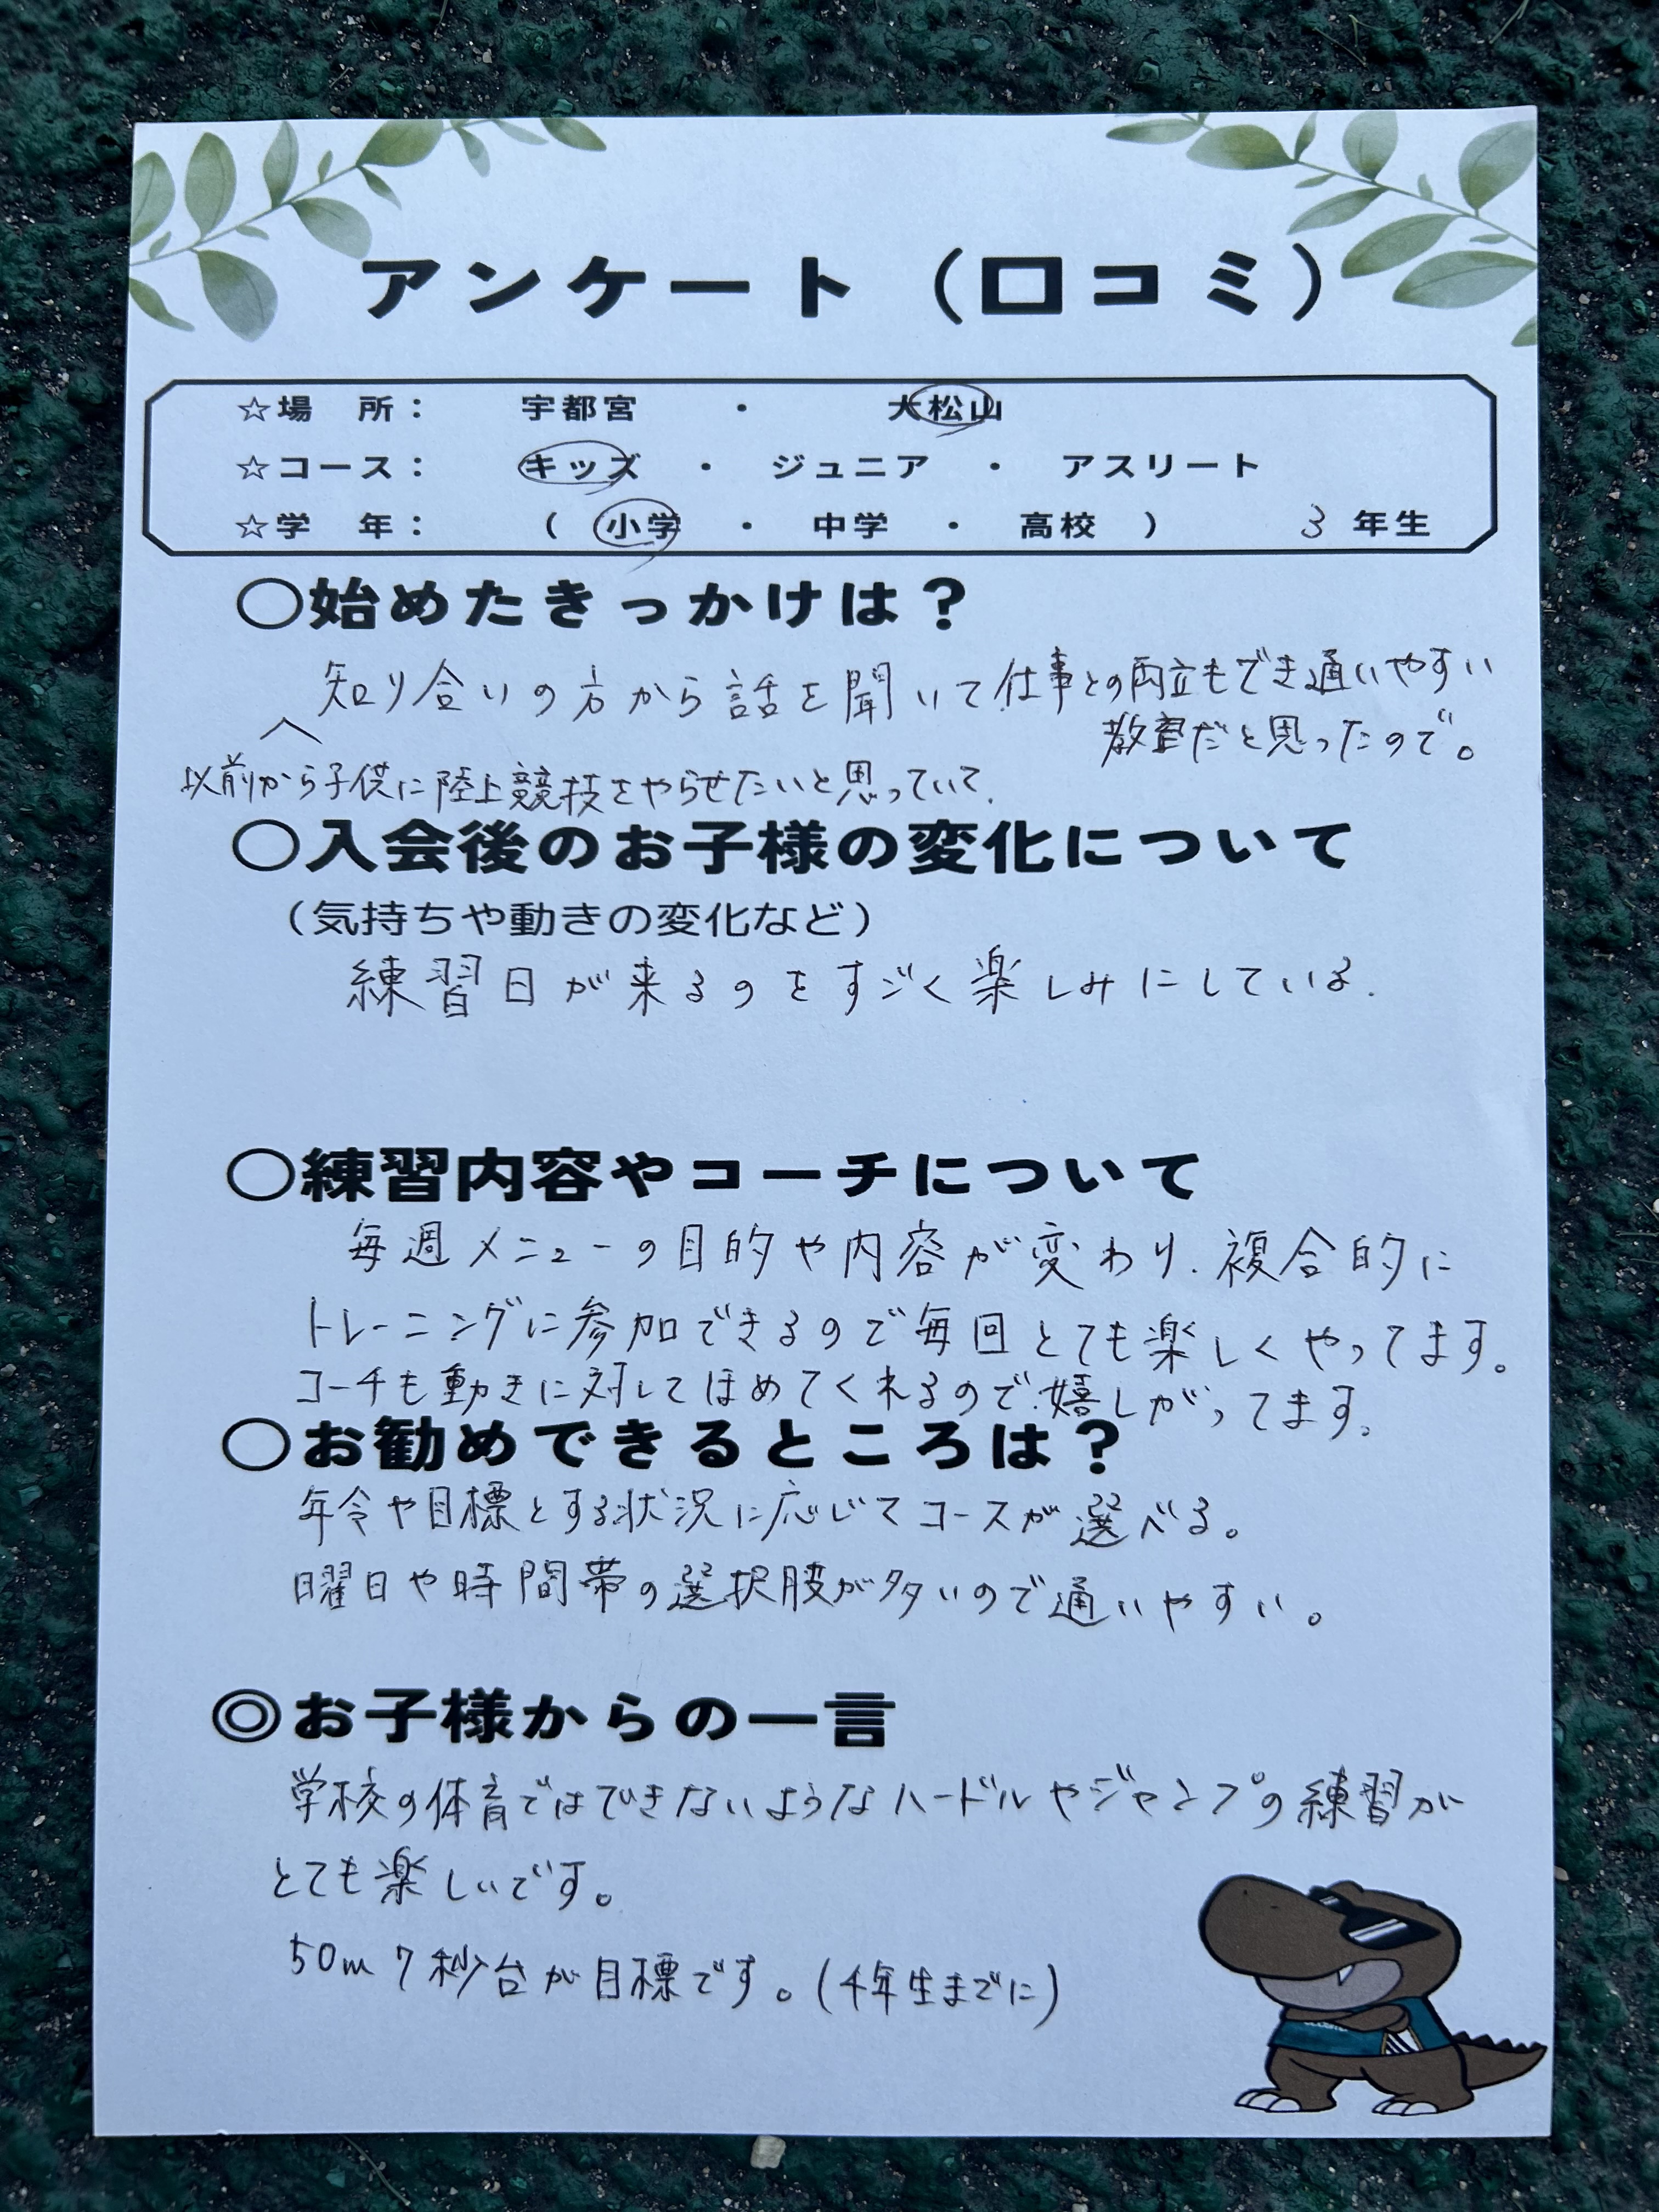 アンケート（口コミ）
☆場　所：　宇都宮　・　大松山
☆コース：　キッズ　・　ジュニア　・　アスリート
☆学　年：　（　小学　・　中学　・　高校　）　3 年生
〇始めたきっかけは？
知り合いの方から話を聞いて仕事との両立もでき通いやすい
教室だと思ったので。
以前から子供に陸上競技をやらせたいと思っていて、
〇入会後のお子様の変化について
（気持ちや動きの変化など）
練習日が来るのをすごく楽しみにしている.
〇練習内容やコーチについて
毎週メニューの目的や内容が変わり、複合的に
トレーニングに参加できるので毎回とても楽しくやってます。
コーチも動きに対してほめてくれるので、嬉しがってます。
〇お勧めできるところは？
年令や目標とする状況に応じてコースが選べる。
曜日や時間帯の選択肢が多いので通いやすい。
◎お子様からの一言
学校の体育ではできないようなハードルやジャンプの練習が
とても楽しいです。
50m 7秒台が目標です。(4年生までに)